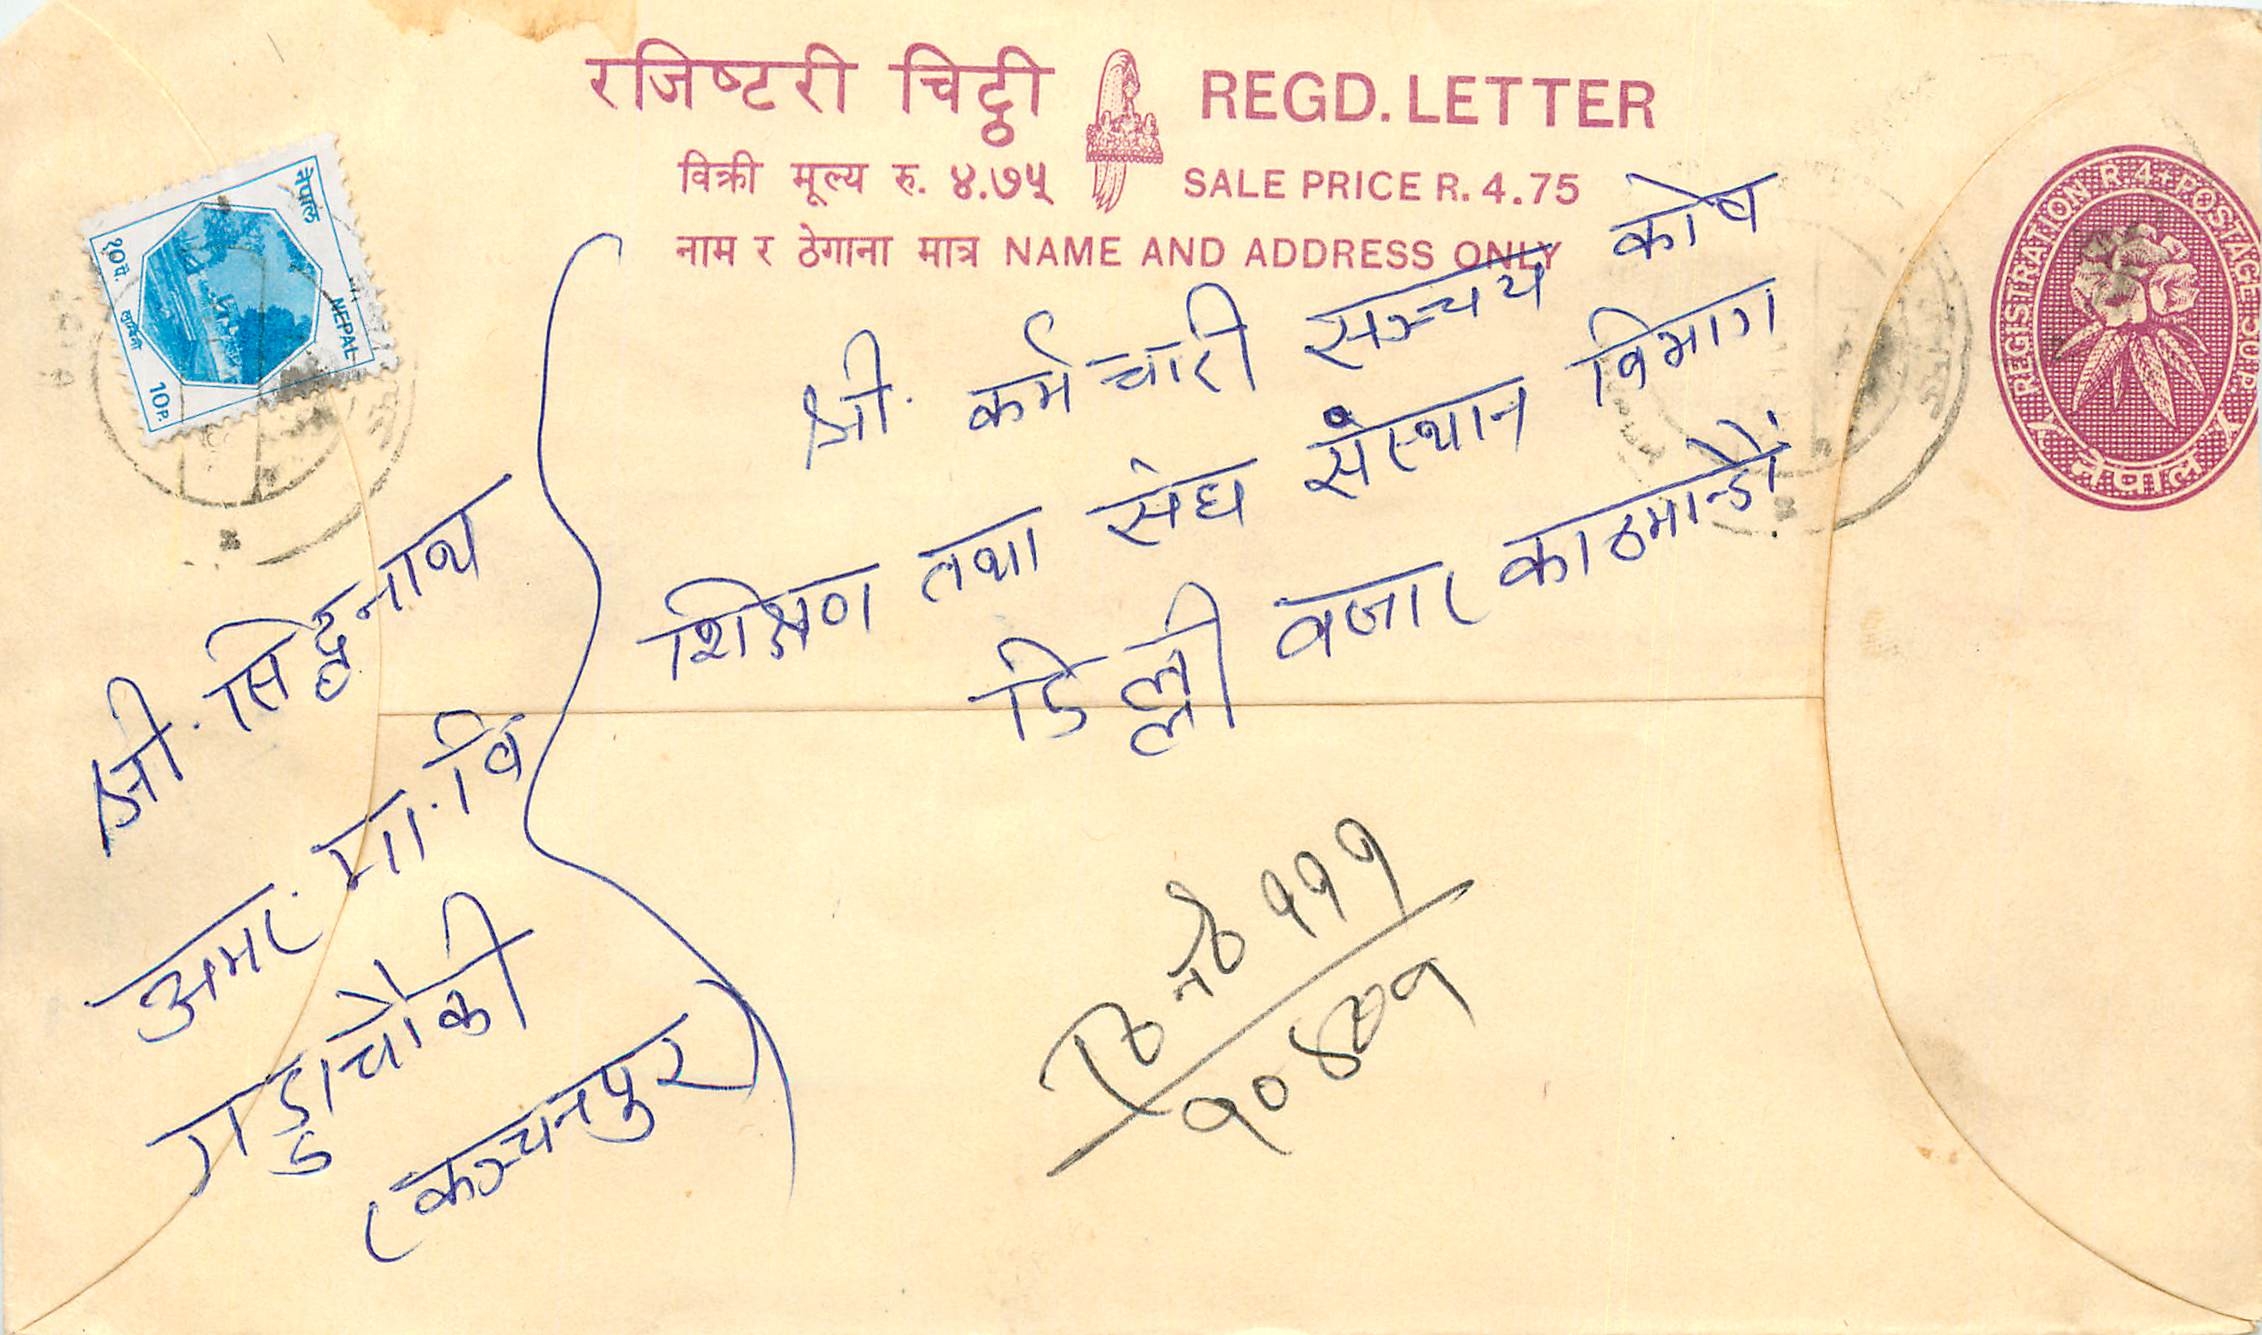 रजिष्टरी चिट्ठी REGD. LETTER
विक्री मूल्य रु. ४.७५ SALE PRICE R. 4.75
नाम र ठेगाना मात्र NAME AND ADDRESS ONLY
नेपाल
NEPAL
१० पै.
लुम्बिनी
10 P.
REGISTRATION R.4+POSTAGE 50 P.
नेपाल
श्री. कर्मचारी सञ्चय कोष
शिक्षण तथा संघ संस्थान विभाग
डिल्ली बजार काठमान्डौं
श्री. सिद्धनाथ
अमर. मा. वि
गड्डाचौकी
(कञ्चनपुर)
१११